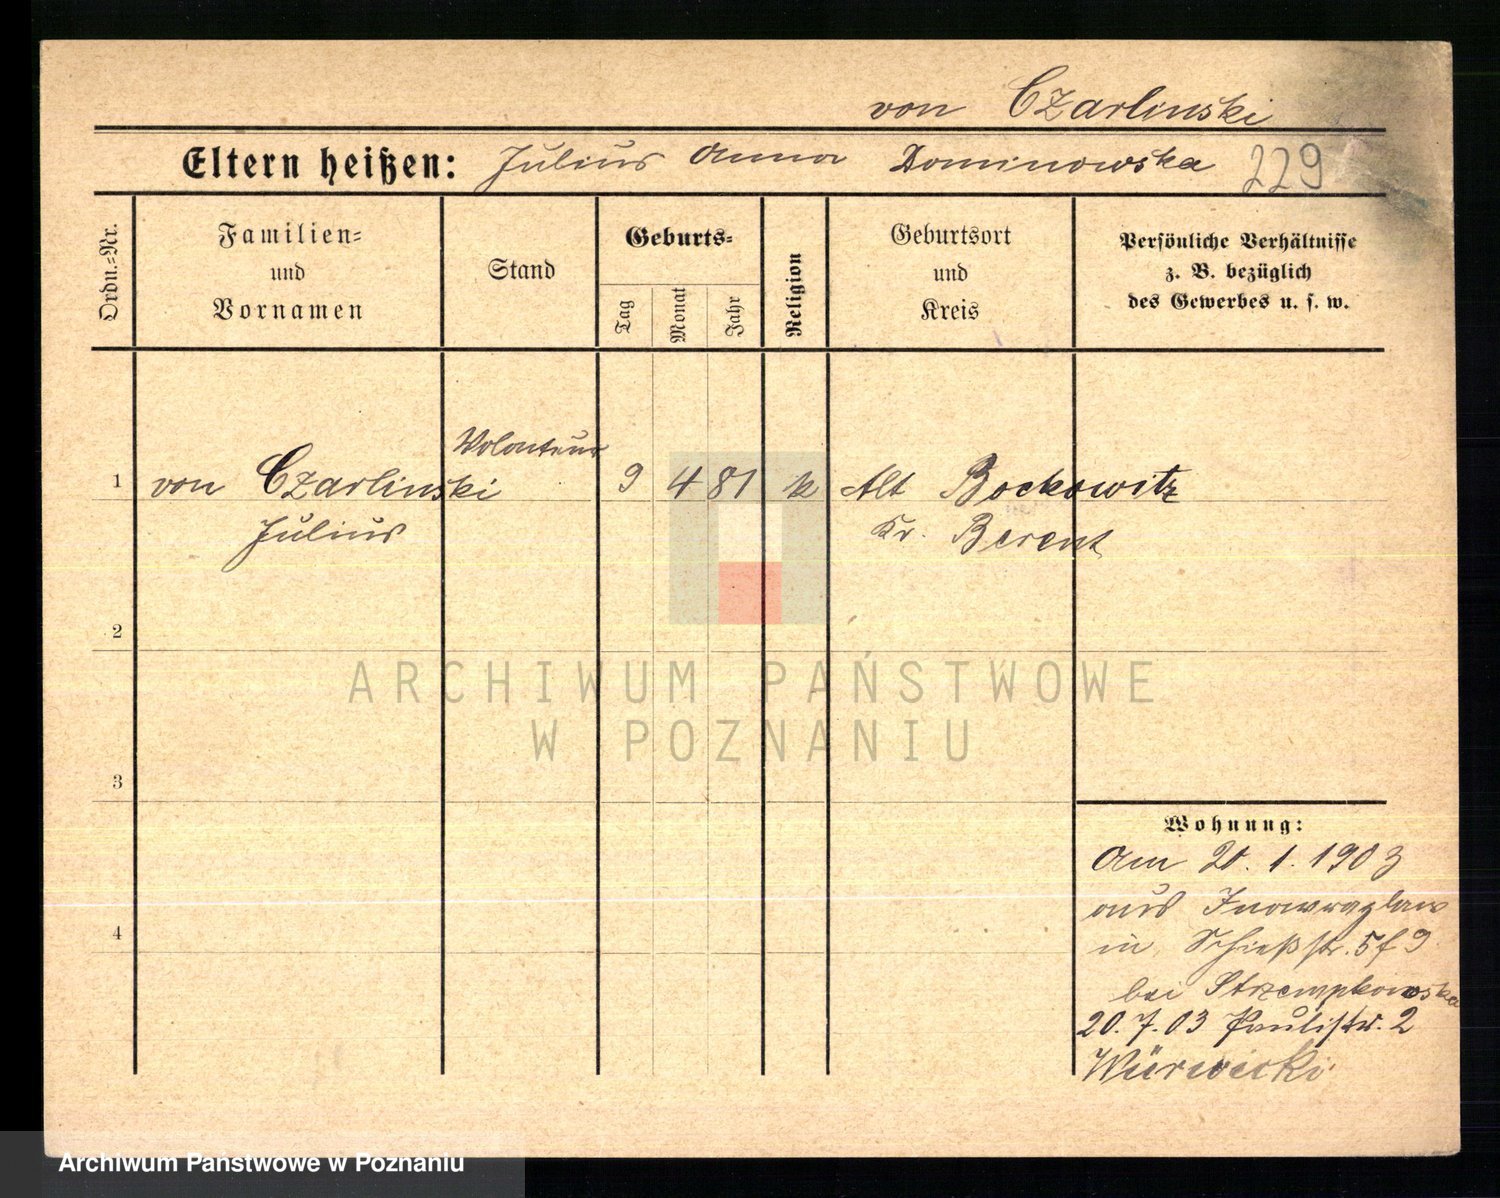 von Czarlinski
Eltern heißen: Julius Anna Dominowska 229
Ordn.-Nr.
Familien-
und
Vornamen
Stand
Geburts-
Tag
Monat
Jahr
Religion
Geburtsort
und
Kreis
Persönliche Verhältnisse
z. B. bezüglich
des Gewerbes u. s. w.
Volonteur
1 von Czarlinski 9 4 81 k Alt Bockowitz
Julius Kr. Berent
2
ARCHIWUM PAŃSTWOWE
W POZNANIU
3
Wohnung:
Am 20. 1. 1903
aus Inowrazlaw
in Schießstr. 5 f 9
4
bei Strzempkowska
20. 7. 03 Paulistr. 2
Archiwum Państwowe w Poznaniu